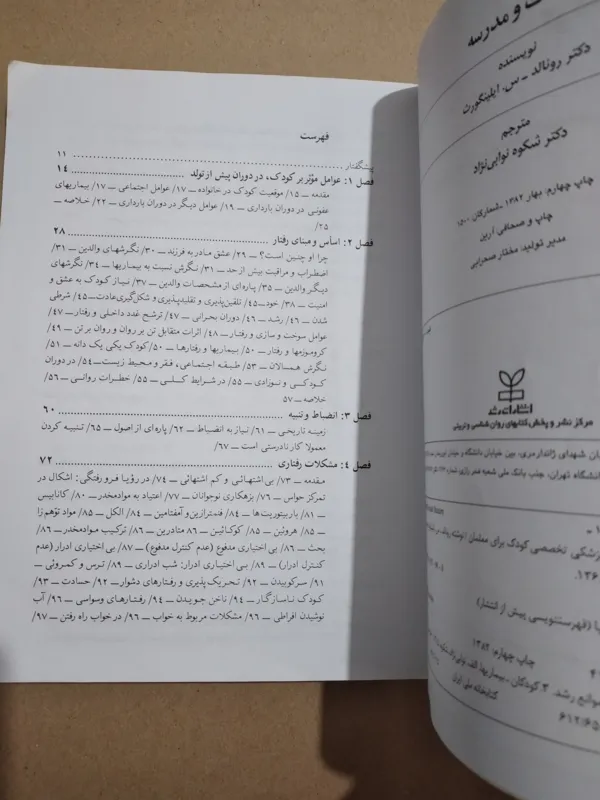 ت و مدرسه
نویسنده
دکتر رونالد ـ س. ایلینگورث
مترجم
دکتر شکوه نوابی‌نژاد
چاپ چهارم: بهار ۱۳۸۲
چاپ و صحافی: آرین
مدیر تولید: مختار صحرایی
انتشارات رشد
مرکز نشر و پخش کتابهای روان شناسی و تربیتی
ان شهدای ژاندارمری، بین خیابان دانشگاه و
دانشگاه تهران، جنب بانک ملی شعبه
زشکی تخصصی کودک برای معلمان
ا (فهرستنویسی پیش از انتشار)
چاپ چهارم: ۱۳۸۲
موانع رشد. ۳. کودکان ـ بیماریها. الف.
کتابخانه ملی ایران
فهرست
پیشگفتار ۱۱
فصل ۱: عوامل مؤثر بر کودک، در دوران پیش از تولد ۱۴
مقدمه ـ ۱۵/ موقعیت کودک در خانواده ـ ۱۷/ عوامل اجتماعی ـ ۱۷/ بیماریهای
عفونی در دوران بارداری ـ ۱۹/ عوامل دیگر در دوران بارداری ـ ۲۲/ خلاصه ـ
۲۵/
فصل ۲: اساس و مبنای رفتار ۲۸
چرا او چنین است؟ ـ ۲۹/ عشق مادر به فرزند ـ ۳۰/ نگرشهای والدین ـ ۳۱/
اضطراب و مراقبت بیش از حد ـ ۳۱/ نگرش نسبت به بیماریها ـ ۳۴/ نگرشهای
دیگر والدین ـ ۳۵/ پاره‌ای از مشخصات والدین ـ ۳۶/ نیاز کودک به عشق و
امنیت ـ ۳۸/ خود ـ ۴۵/ تلقین‌پذیری و تقلیدپذیری و شکل‌گیری عادت ـ ۴۵/ شرطی
شدن ـ ۴۶/ رشد ـ ۴۶/ دوران بحرانی ـ ۴۷/ ترشح غدد داخلی و رفتار ـ ۴۷/
عوامل سوخت و سازی و رفتار ـ ۴۸/ اثرات متقابل تن بر روان و روان بر تن ـ ۴۹/
کروموزمها و رفتار ـ ۵۰/ بیماریها و رفتارها ـ ۵۰/ کودک یکی یک دانه ـ ۵۱/
نگرش همسالان ـ ۵۳/ طبقه اجتماعی، فقر و محیط زیست ـ ۵۴/ در دوران
کودکی و نوزادی ـ ۵۵/ در شرایط کلی ـ ۵۵/ خطرات روانی ـ ۵۶/
خلاصه ـ ۵۷
فصل ۳: انضباط و تنبیه ۶۰
زمینه تاریخی ـ ۶۱/ نیاز به انضباط ـ ۶۲/ پاره‌ای از اصول ـ ۶۵/ تنبیه کردن
معمولا کار نادرستی است ـ ۶۷/
فصل ۴: مشکلات رفتاری ۷۲
مقدمه ـ ۷۳/ بی اشتهائی و کم اشتهائی ـ ۷۴/ در رؤیا فرورفتگی: اشکال در
تمرکز حواس ـ ۷۶/ بزهکاری نوجوانان ـ ۷۷/ اعتیاد به موادمخدر ـ ۸۰/ کانابیس
ـ ۸۱/ باربیتوریت‌ها ـ ۸۴/ فنمترازین و آمفتامین ـ ۸۴/ الکل ـ ۸۵/ مواد توهم‌زا
ـ ۸۵/ هروئین ـ ۸۵/ کوکائین ـ ۸۶/ متادرین ـ ۸۶/ ترکیب موادمخدر ـ ۸۶/
بحث ـ ۸۶/ بی اختیاری مدفوع (عدم کنترل مدفوع) ـ ۸۷/ بی اختیاری ادرار (عدم
کنترل ادرار) ـ ۸۹/ بی اختیاری ادرار: شب ادراری ـ ۸۹/ ترس و کمروئی ـ
۹۱/ سرکوبیدن ـ ۹۲/ تحریک پذیری و رفتارهای دشوار ـ ۹۲/ حسادت ـ ۹۳/
کودک ناسازگار ـ ۹۴/ ناخن جویدن ـ ۹۴/ رفتارهای وسواسی ـ ۹۶/ آب
نوشیدن افراطی ـ ۹۶/ مشکلات مربوط به خواب ـ ۹۶/ در خواب راه رفتن ـ ۹۷/